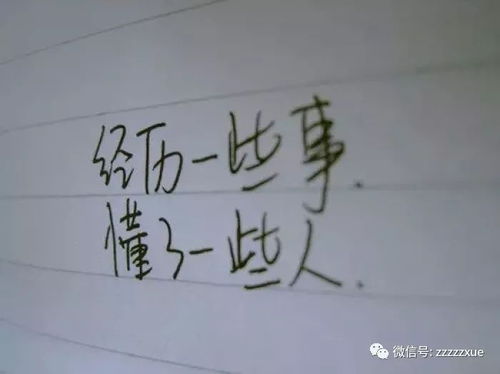 经历一些事.
懂了一些人.
微信号: zzzzzxue